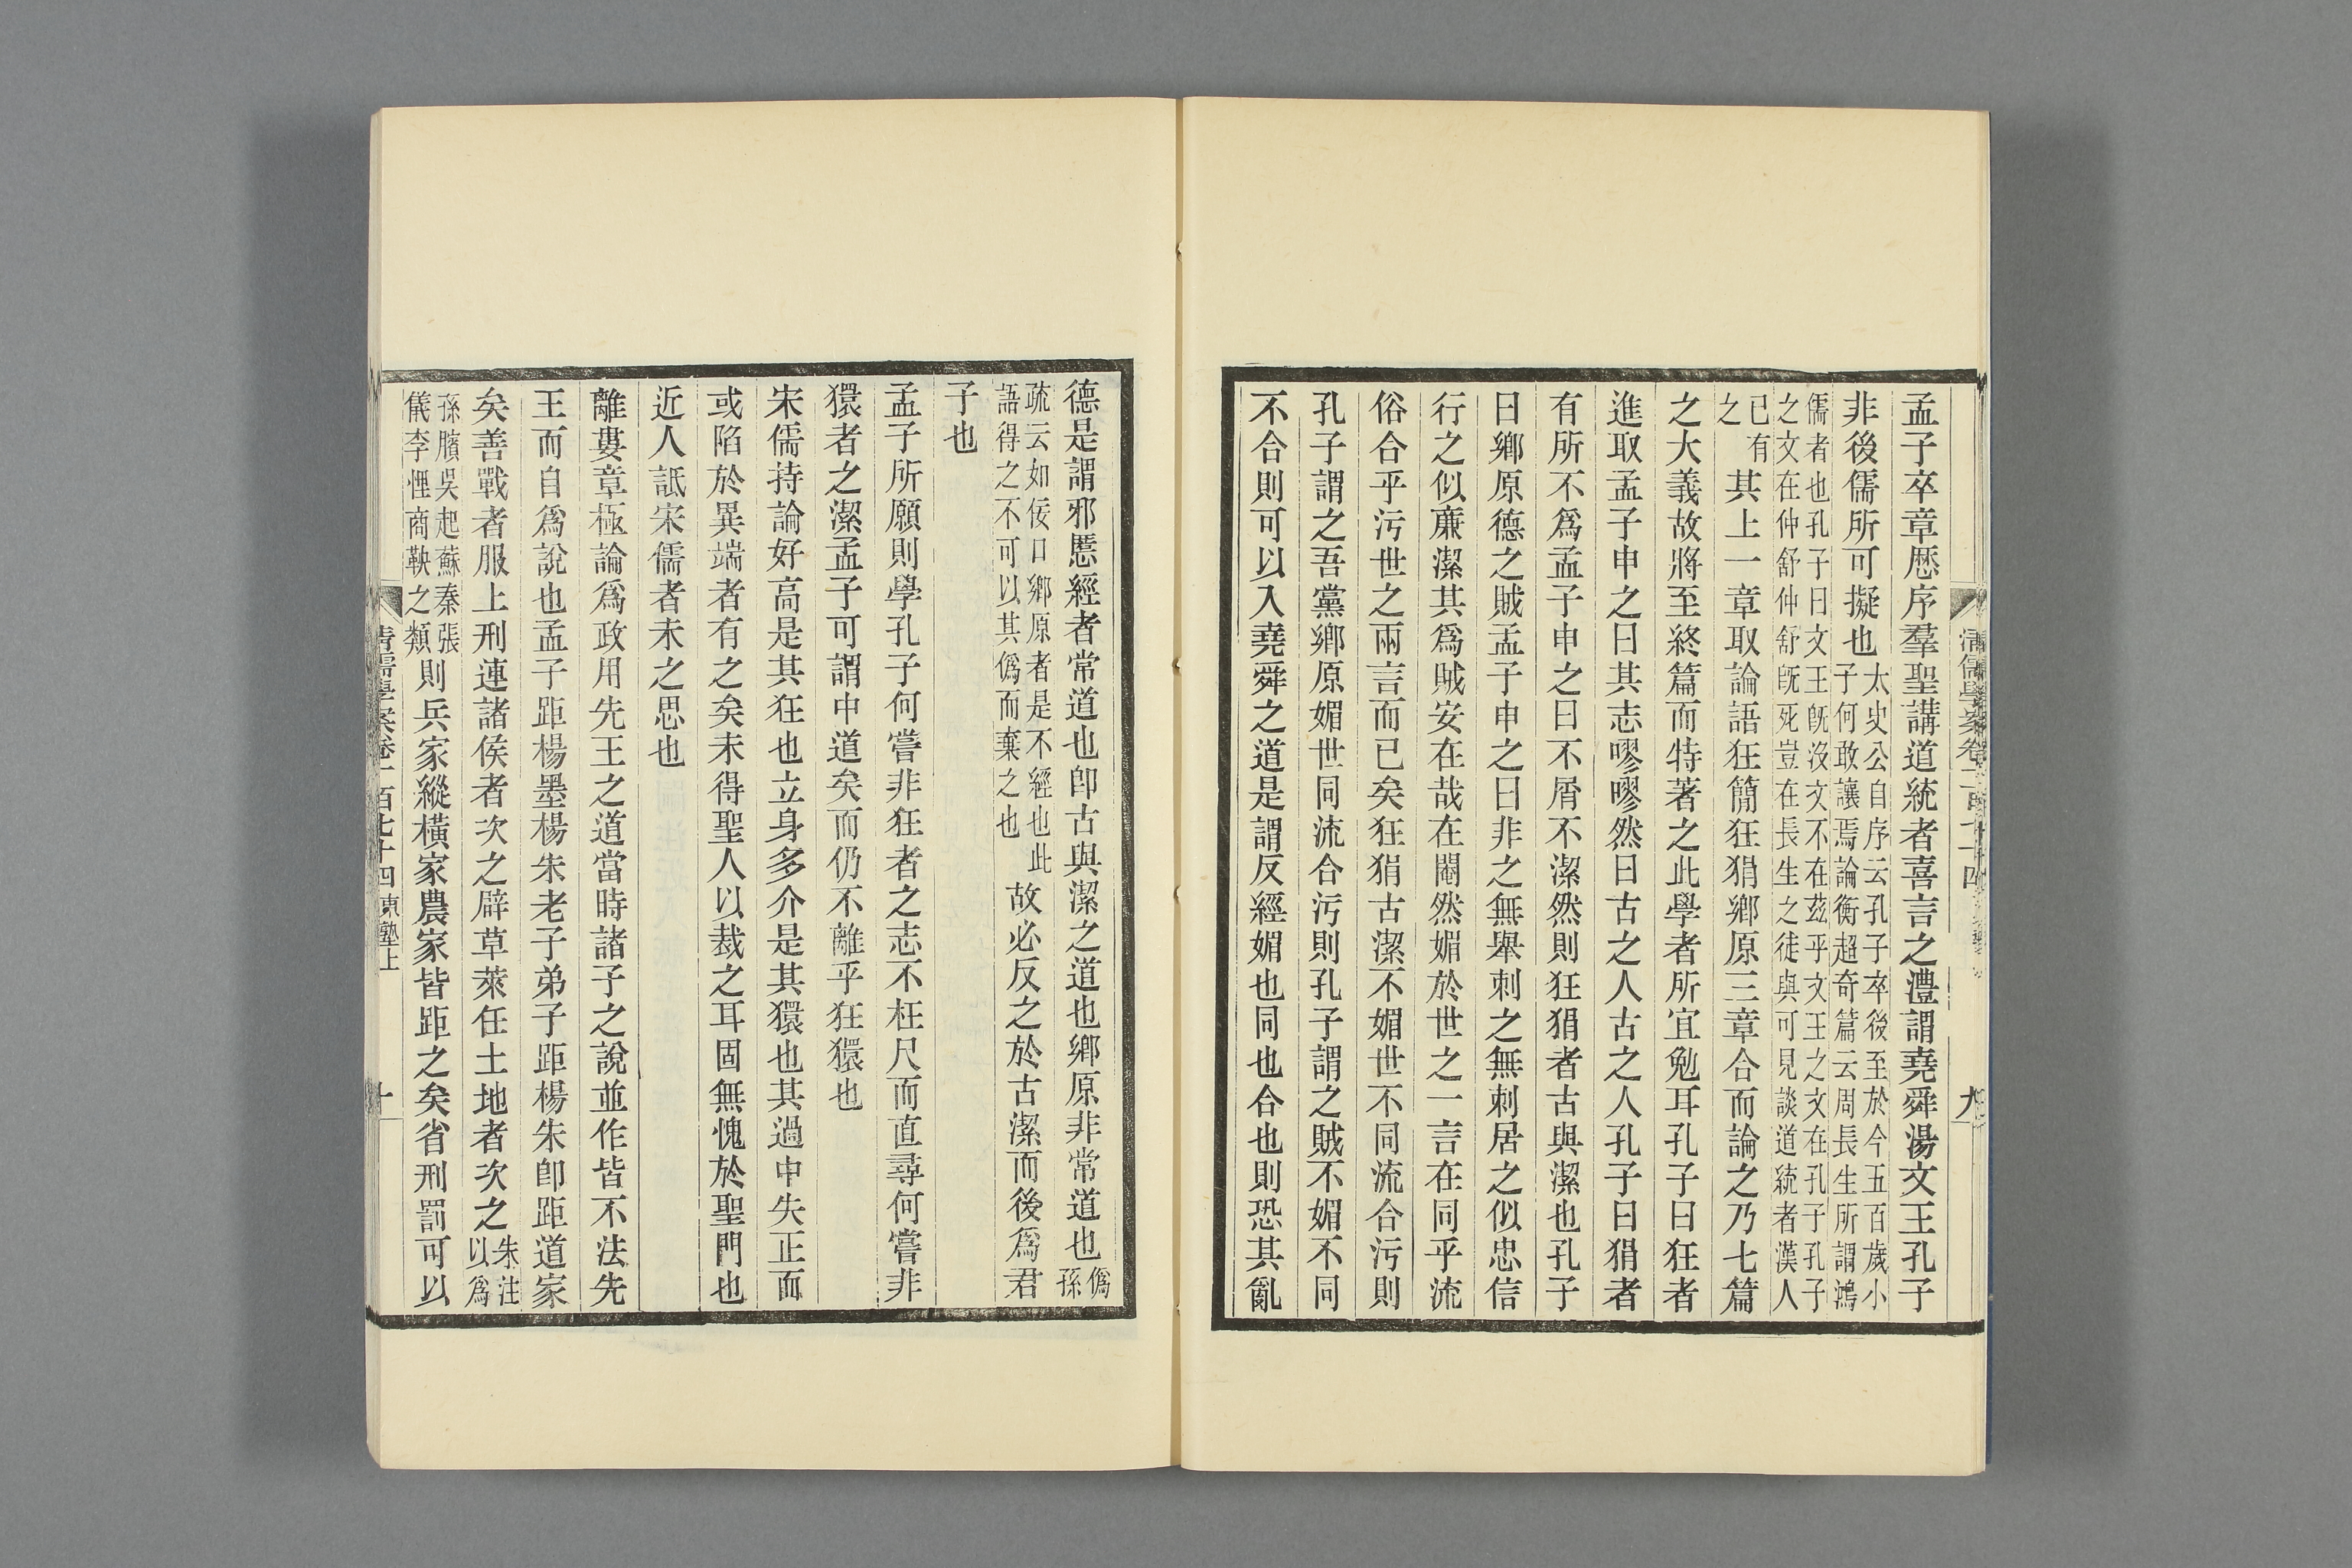 孟子卒章歷序羣聖講道統者喜言之澧謂堯舜湯文王孔子
非後儒所可擬也太史公自序云孔子卒後至於今五百歲小子何敢讓焉論衡超奇篇云周長生所謂鴻
儒者也孔子曰文王旣沒文不在茲乎文王之文在孔子孔子之文在仲舒仲舒旣死豈在長生之徒與可見談道統者漢人
已有之其上一章取論語狂簡狂狷鄉原三章合而論之乃七篇
之大義故將至終篇而特著之此學者所宜勉耳孔子曰狂者
進取孟子申之曰其志嘐嘐然曰古之人古之人孔子曰狷者
有所不爲孟子申之曰不屑不潔然則狂狷者古與潔也孔子
曰鄉原德之賊孟子申之曰非之無舉刺之無刺居之似忠信
行之似廉潔其爲賊安在哉在閹然媚於世之一言在同乎流
俗合乎污世之兩言而已矣狂狷古潔不媚世不同流合污則
孔子謂之吾黨鄉原媚世同流合污則孔子謂之賊不媚不同
不合則可以入堯舜之道是謂反經媚也同也合也則恐其亂
清儒學案卷一百七十四
九
德是謂邪慝經者常道也卽古與潔之道也鄉原非常道也僞孫
疏云如佞口鄉原者是不經也此語得之不可以其僞而棄之也故必反之於古潔而後爲君
子也
孟子所願則學孔子何嘗非狂者之志不枉尺而直尋何嘗非
獧者之潔孟子可謂中道矣而仍不離乎狂獧也
宋儒持論好高是其狂也立身多介是其獧也其過中失正而
或陷於異端者有之矣未得聖人以裁之耳固無愧於聖門也
近人詆宋儒者未之思也
離婁章極論爲政用先王之道當時諸子之說並作皆不法先
王而自爲說也孟子距楊墨楊朱老子弟子距楊朱卽距道家
矣善戰者服上刑連諸侯者次之辟草萊任土地者次之朱注以爲
孫臏吳起蘇秦張儀李悝商鞅之類則兵家縱橫家農家皆距之矣省刑罰可以
清儒學案卷一百七十四 東塾上
十